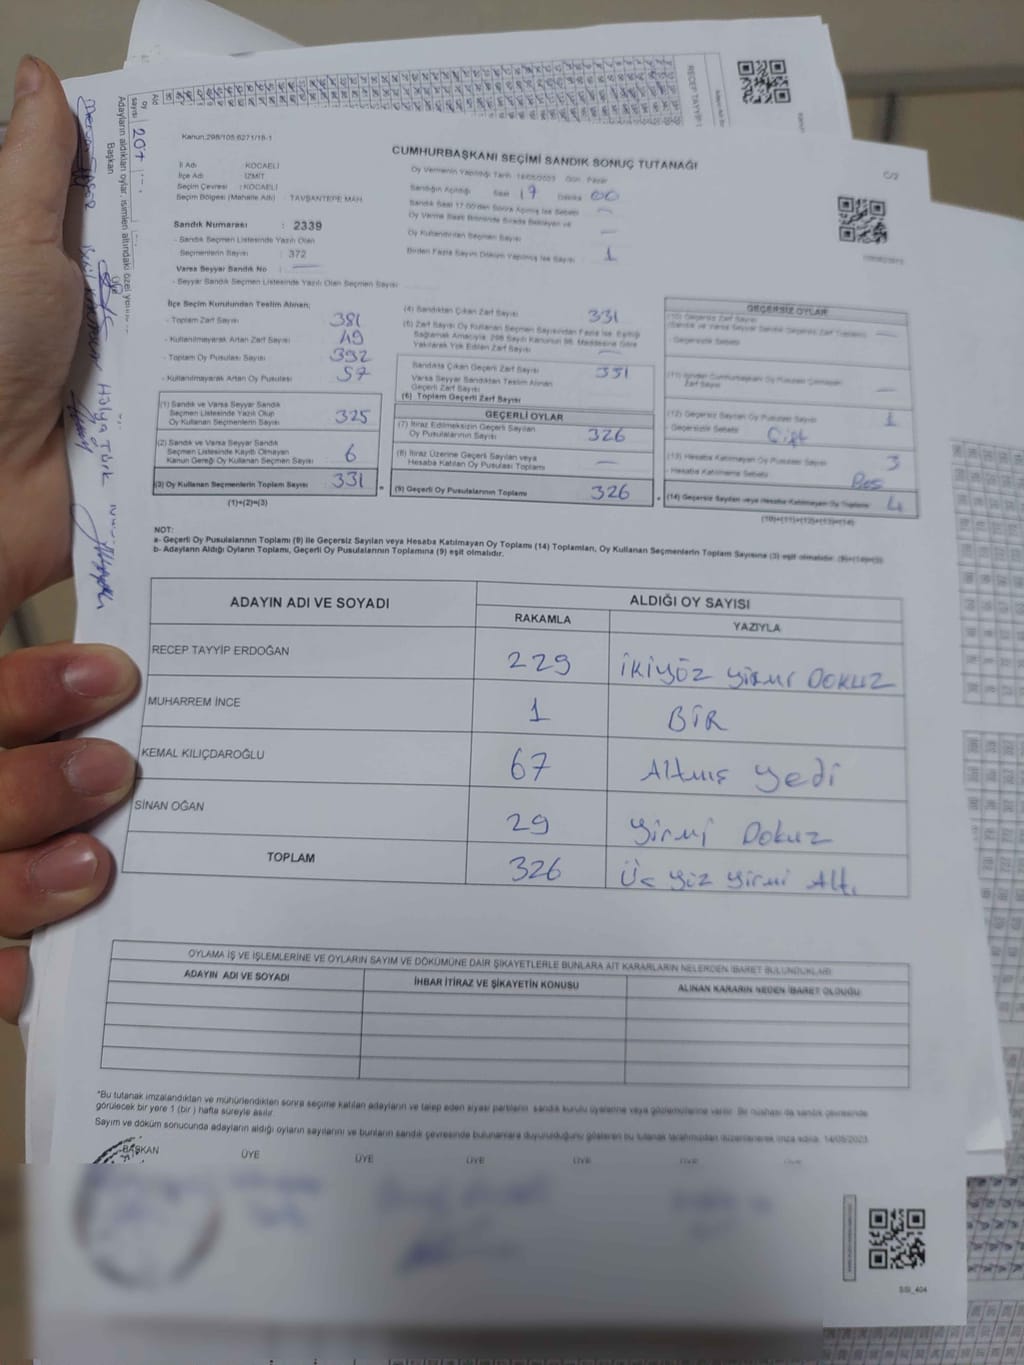 Kanun:298/105 6271/18-1
CUMHURBAŞKANI SEÇİMİ SANDIK SONUÇ TUTANAĞI
İl Adı : KOCAELİ
İlçe Adı : İZMİT
Seçim Çevresi : KOCAELİ
Seçim Bölgesi (Mahalle Adı) : TAVŞANTEPE MAH.
Sandık Numarası : 2339
- Sandık Seçmen Listesinde Yazılı Olan
Seçmenlerin Sayısı : 372
Varsa Seyyar Sandık No :
- Seyyar Sandık Seçmen Listesinde Yazılı Olan Seçmen Sayısı
Oy Vermenin Yapıldığı Tarih : 14/05/2023 Gün : Pazar
Sandığın Açıldığı Saat 17 Dakika 00
Sandık Saat 17.00'den Sonra Açılmış İse Sebebi
Oy Verme Saati Bitiminde Sırada Bekleyen ve
Oy Kullandırılan Seçmen Sayısı
Birden Fazla Sayım Döküm Yapılmış İse Sayısı 1
İlçe Seçim Kurulundan Teslim Alınan;
- Toplam Zarf Sayısı 381
- Kullanılmayarak Artan Zarf Sayısı 49
- Toplam Oy Pusulası Sayısı 392
- Kullanılmayarak Artan Oy Pusulası 57
(1) Sandık ve Varsa Seyyar Sandık
Seçmen Listesinde Yazılı Olup
Oy Kullanan Seçmenlerin Sayısı 325
(2) Sandık ve Varsa Seyyar Sandık
Seçmen Listesinde Kayıtlı Olmayan
Kanun Gereği Oy Kullanan Seçmen Sayısı 6
(3) Oy Kullanan Seçmenlerin Toplam Sayısı 331
(1)+(2)=(3)
(4) Sandıktan Çıkan Zarf Sayısı 331
(5) Zarf Sayısı Oy Kullanan Seçmen Sayısından Fazla İse Eşitliği
Sağlamak Amacıyla, 298 Sayılı Kanunun 98. Maddesine Göre
Yakılarak Yok Edilen Zarf Sayısı
Sandıkta Çıkan Geçerli Zarf Sayısı 331
Varsa Seyyar Sandıktan Teslim Alınan
Geçerli Zarf Sayısı
(6) Toplam Geçerli Zarf Sayısı
GEÇERLİ OYLAR
(7) İtiraz Edilmeksizin Geçerli Sayılan
Oy Pusulalarının Sayısı 326
(8) İtiraz Üzerine Geçerli Sayılan veya
Hesaba Katılan Oy Pusulası Toplamı
(9) Geçerli Oy Pusulalarının Toplamı 326
GEÇERSİZ OYLAR
(10) Geçersiz Zarf Sayısı
(Sandık ve Varsa Seyyar Sandık Geçersiz Zarf Toplamı)
- Geçersizlik Sebebi
(12) Geçersiz Sayılan Oy Pusulası Sayısı 1
- Geçersizlik Sebebi Çift
(13) Hesaba Katılmayan Oy Pusulası Sayısı 3
- Hesaba Katılmama Sebebi Boş
(14) Geçersiz Sayılan veya Hesaba Katılmayan Oy Toplamı 4
(10)+(11)+(12)+(13)=(14)
NOT:
a- Geçerli Oy Pusulalarının Toplamı (9) ile Geçersiz Sayılan veya Hesaba Katılmayan Oy Toplamı (14) Toplamları, Oy Kullanan Seçmenlerin Toplam Sayısına (3) eşit olmalıdır. (9)+(14)=(3)
b- Adayların Aldığı Oyların Toplamı, Geçerli Oy Pusulalarının Toplamına (9) eşit olmalıdır.
ADAYIN ADI VE SOYADI
ALDIĞI OY SAYISI
RAKAMLA YAZIYLA
RECEP TAYYİP ERDOĞAN 229 İkiyöz yirmi Dokuz
MUHARREM İNCE 1 BİR
KEMAL KILIÇDAROĞLU 67 Altmış yedi
SİNAN OĞAN 29 yirmi Dokuz
TOPLAM 326 Üç yüz yirmi Altı
OYLAMA İŞ VE İŞLEMLERİNE VE OYLARIN SAYIM VE DÖKÜMÜNE DAİR ŞİKAYETLERLE BUNLARA AİT KARARLARIN NELERDEN İBARET BULUNDUKLARI
ADAYIN ADI VE SOYADI
İHBAR İTİRAZ VE ŞİKAYETİN KONUSU
ALINAN KARARIN NEDEN İBARET OLDUĞU
*Bu tutanak imzalandıktan ve mühürlendikten sonra seçime katılan adayların ve talep eden siyasi partilerin sandık kurulu üyelerine veya gözlemcilerine verilir. Bir nüshası da sandık çevresinde
görülecek bir yere 1 (bir) hafta süreyle asılır.
Sayım ve döküm sonucunda adayların aldığı oyların sayılarını ve bunların sandık çevresinde bulunanlara duyurulduğunu gösteren bu tutanak tarafımızdan düzenlenerek imza edildi. 14/05/2023
BAŞKAN ÜYE ÜYE ÜYE ÜYE ÜYE ÜYE
SSI_404
Oy
sayısı 207
Adayların aldıkları oylar, isimleri altındaki özel
Başkan
Üye
Hülya Türk
RECEP TAYYİP